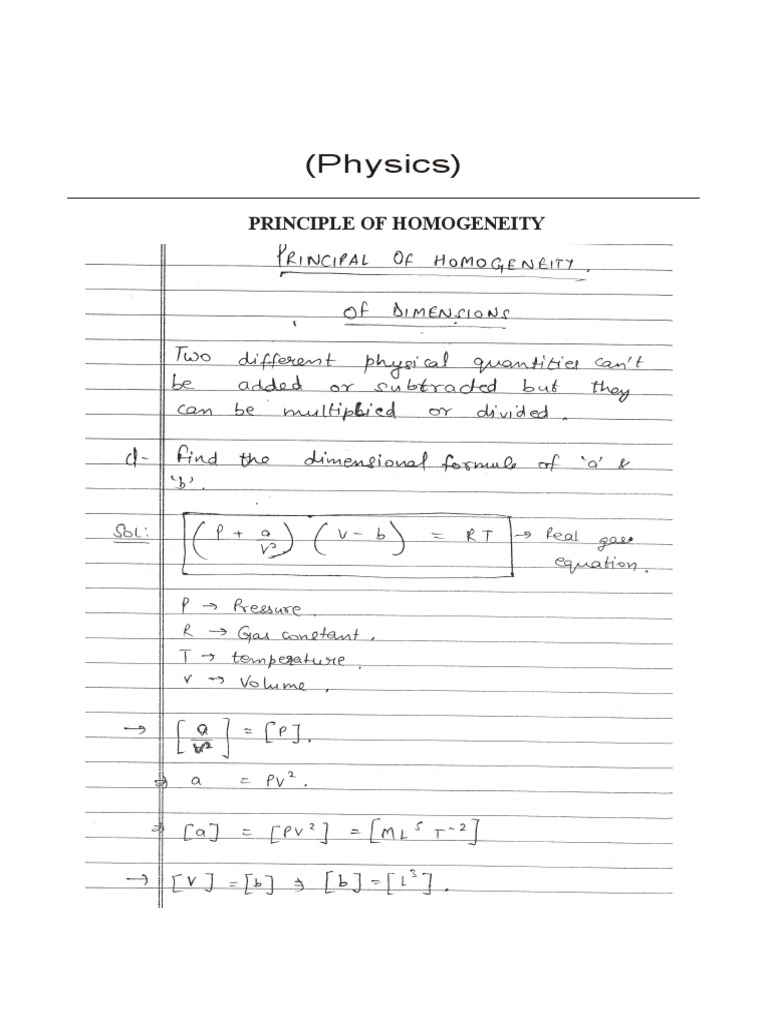 (Physics)
PRINCIPLE OF HOMOGENEITY
PRINCIPAL OF HOMOGENEITY.
OF DIMENSIONS
Two different physical quantities can't
be added or subtracted but they
can be multiplied or divided.
Q- Find the dimensional formula of 'a' &
'b'.
Sol: (P + a/V²) (V - b) = RT → Real gas
equation.
P → Pressure.
R → Gas constant.
T → temperature.
V → Volume.
→ [a/V²] = [P].
⇒ a = PV².
⇒ [a] = [PV²] = [ML⁵T⁻²]
→ [V] = [b] ⇒ [b] = [L³].